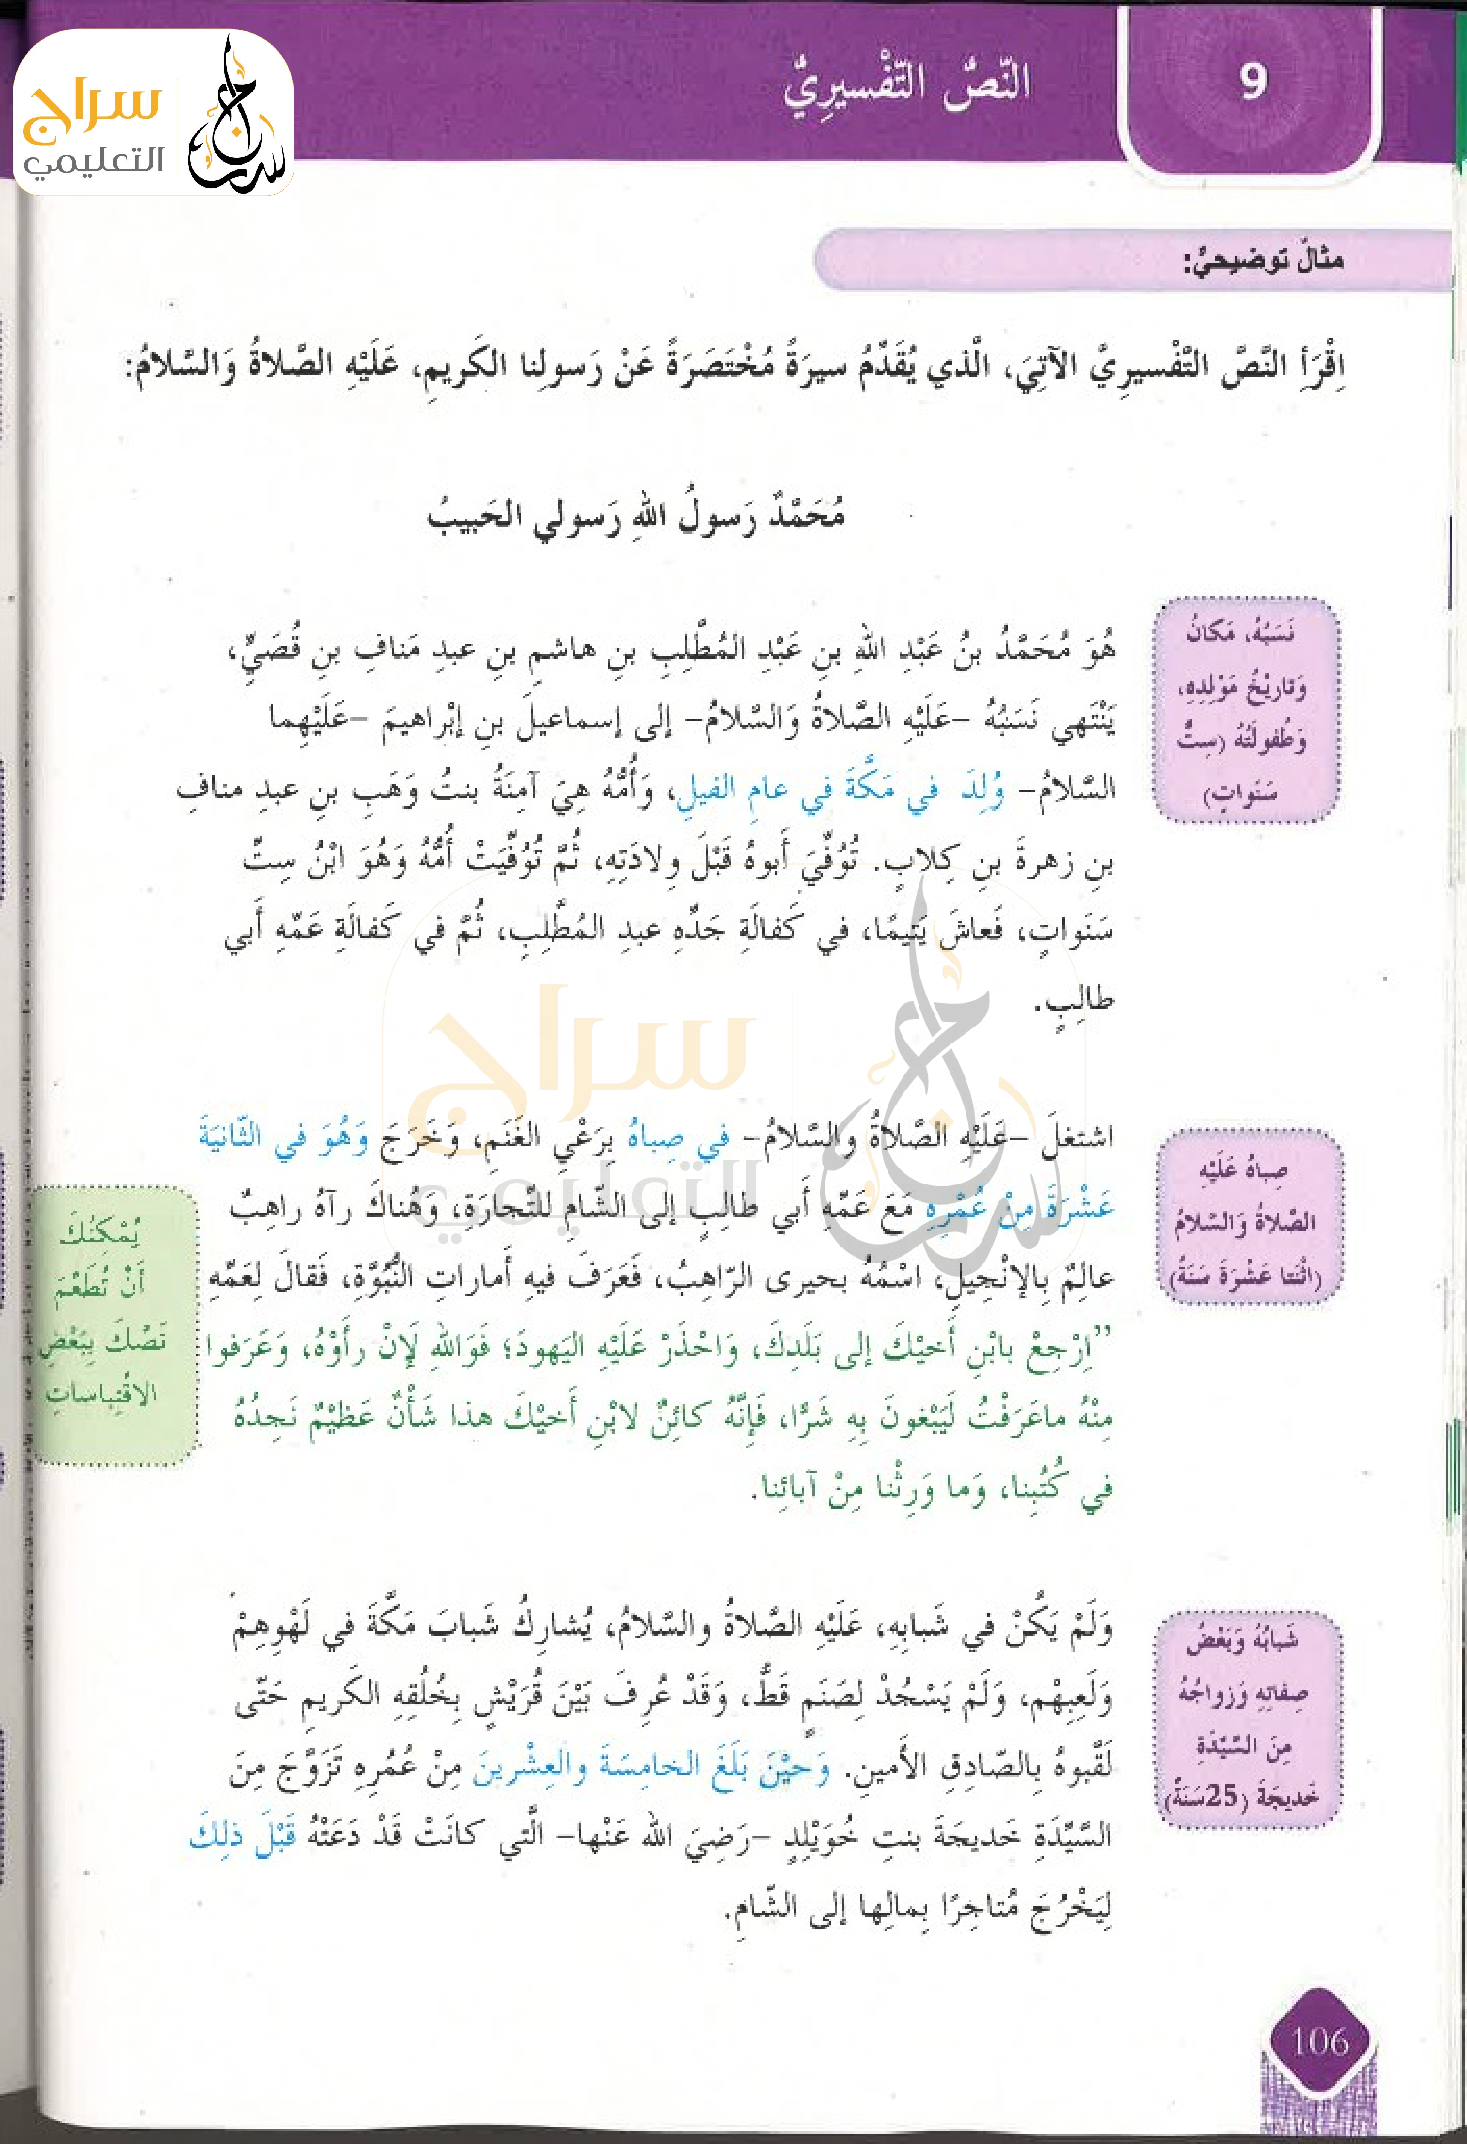 سراج
التعليمي
النّصُّ التّفْسيرِيُّ
9
مثالٌ توضيحيٌّ:
اِقْرَأِ النَّصَّ التَّفْسيرِيَّ الآتِيَ، الَّذي يُقَدِّمُ سيرَةً مُخْتَصَرَةً عَنْ رَسولِنا الكَريمِ، عَلَيْهِ الصَّلاةُ وَالسَّلامُ:
مُحَمَّدٌ رَسولُ اللهِ رَسولي الحَبيبُ
نَسَبُهُ، مَكانُ
وَتاريْخُ مَوْلِدِهِ،
وَطُفولَتُهُ (سِتُّ
سَنَواتٍ)
هُوَ مُحَمَّدُ بنُ عَبْدِ اللهِ بنِ عَبْدِ المُطَّلِبِ بنِ هاشمِ بنِ عبدِ مَنافِ بنِ قُصَيٍّ،
يَنْتَهي نَسَبُهُ –عَلَيْهِ الصَّلاةُ وَالسَّلامُ– إلى إسماعيلَ بنِ إبْراهيمَ –عَلَيْهِما
السَّلامُ– وُلِدَ في مَكَّةَ في عامِ الفيلِ، وَأُمُّهُ هِيَ آمِنَةُ بنتُ وَهَبِ بنِ عبدِ منافِ
بنِ زهرةَ بنِ كِلابٍ. تُوُفِّيَ أَبوهُ قَبْلَ وِلادَتِهِ، ثُمَّ تُوُفِّيَتْ أُمُّهُ وَهُوَ ابْنُ سِتِّ
سَنَواتٍ، فَعاشَ يَتيمًا، في كَفالَةِ جَدِّهِ عبدِ المُطَّلِبِ، ثُمَّ في كَفالَةِ عَمِّهِ أَبي
طالِبٍ.
صِباهُ عَلَيْهِ
الصَّلاةُ وَالسَّلامُ
(اثْنَتا عَشْرَةَ سَنَةً)
اشتغلَ –عَلَيْهِ الصَّلاةُ والسَّلامُ– في صِباهُ بِرَعْيِ الغَنَمِ، وَخَرَجَ وَهُوَ في الثّانِيَةَ
عَشْرَةَ مِنْ عُمْرِهِ مَعَ عَمِّهِ أَبي طالِبٍ إلى الشّامِ للتِّجارَةِ، وَهُناكَ رآهُ راهِبٌ
عالِمٌ بِالإنْجيلِ، اسْمُهُ بحيرى الرّاهِبُ، فَعَرَفَ فيهِ أَماراتِ النُّبُوَّةِ، فَقالَ لِعَمِّهِ
"اِرْجِعْ بابْنِ أَخيْكَ إلى بَلَدِكَ، وَاحْذَرْ عَلَيْهِ اليَهودَ؛ فَوَاللهِ لَإنْ رأَوْهُ، وَعَرَفوا
مِنْهُ ماعَرَفْتُ لَيَبْغونَ بِهِ شَرًّا، فَإنَّهُ كائِنٌ لابْنِ أَخيْكَ هذا شَأْنٌ عَظيْمٌ نَجِدُهُ
في كُتُبِنا، وَما وَرِثْنا مِنْ آبائِنا.
يُمْكِنُكَ
أَنْ تُطَعِّمَ
نَصَّكَ بِبَعْضِ
الاقْتِباساتِ
شَبابُهُ وَبَعْضُ
صِفاتِهِ وَزواجُهُ
مِنَ السَّيِّدَةِ
خَديجَةَ (25سَنَةً)
وَلَمْ يَكُنْ في شَبابِهِ، عَلَيْهِ الصَّلاةُ والسَّلامُ، يُشارِكُ شَبابَ مَكَّةَ في لَهْوِهِمْ
وَلَعِبِهْم، وَلَمْ يَسْجُدْ لِصَنَمٍ قَطُّ، وَقَدْ عُرِفَ بَيْنَ قُرَيْشٍ بِخُلُقِهِ الكَريمِ حَتّى
لَقَّبوهُ بِالصّادِقِ الأَمينِ. وَحيْنَ بَلَغَ الخامِسَةَ والعِشْرينَ مِنْ عُمُرِهِ تَزَوَّجَ مِنَ
السَّيِّدَةِ خَديجَةَ بنتِ خُوَيْلِدٍ –رَضِيَ الله عَنْها– الَّتي كانَتْ قَدْ دَعَتْهُ قَبْلَ ذلِكَ
لِيَخْرُجَ مُتاجِرًا بِمالِها إلى الشّامِ.
106